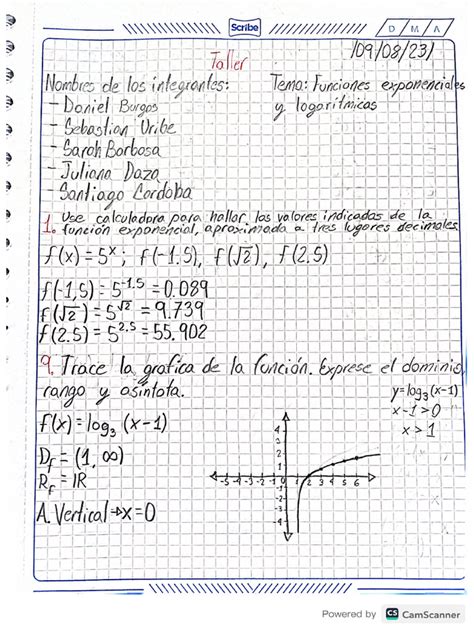 Scribe
D M A
/09/08/23/
Taller
Nombres de los integrantes:
- Daniel Burgos
- Sebastian Uribe
- Sarah Barbosa
- Juliana Daza
- Santiago Cordoba
Tema: Funciones exponenciales
y logaritmicas
1. Use calculadora para hallar las valores indicadas de la
función exponencial, aproximada a tres lugares decimales.
f(x) = 5^x; f(-1.5), f(√2), f(2.5)
f(-1,5) = 5^-1.5 = 0.089
f(√2) = 5^√2 = 9.739
f(2.5) = 5^2.5 = 55.902
9. Trace la grafica de la función. Exprese el dominio
rango y asintota.
y=log₃(x-1)
x-1>0
x>1
f(x) = log₃ (x-1)
D_f = (1, ∞)
R_f = IR
A. Vertical → x=0
4
3
2
1
-5 -4 -3 -2 -1 1 2 3 4 5 6
-1
-2
-3
-4
Powered by CS CamScanner